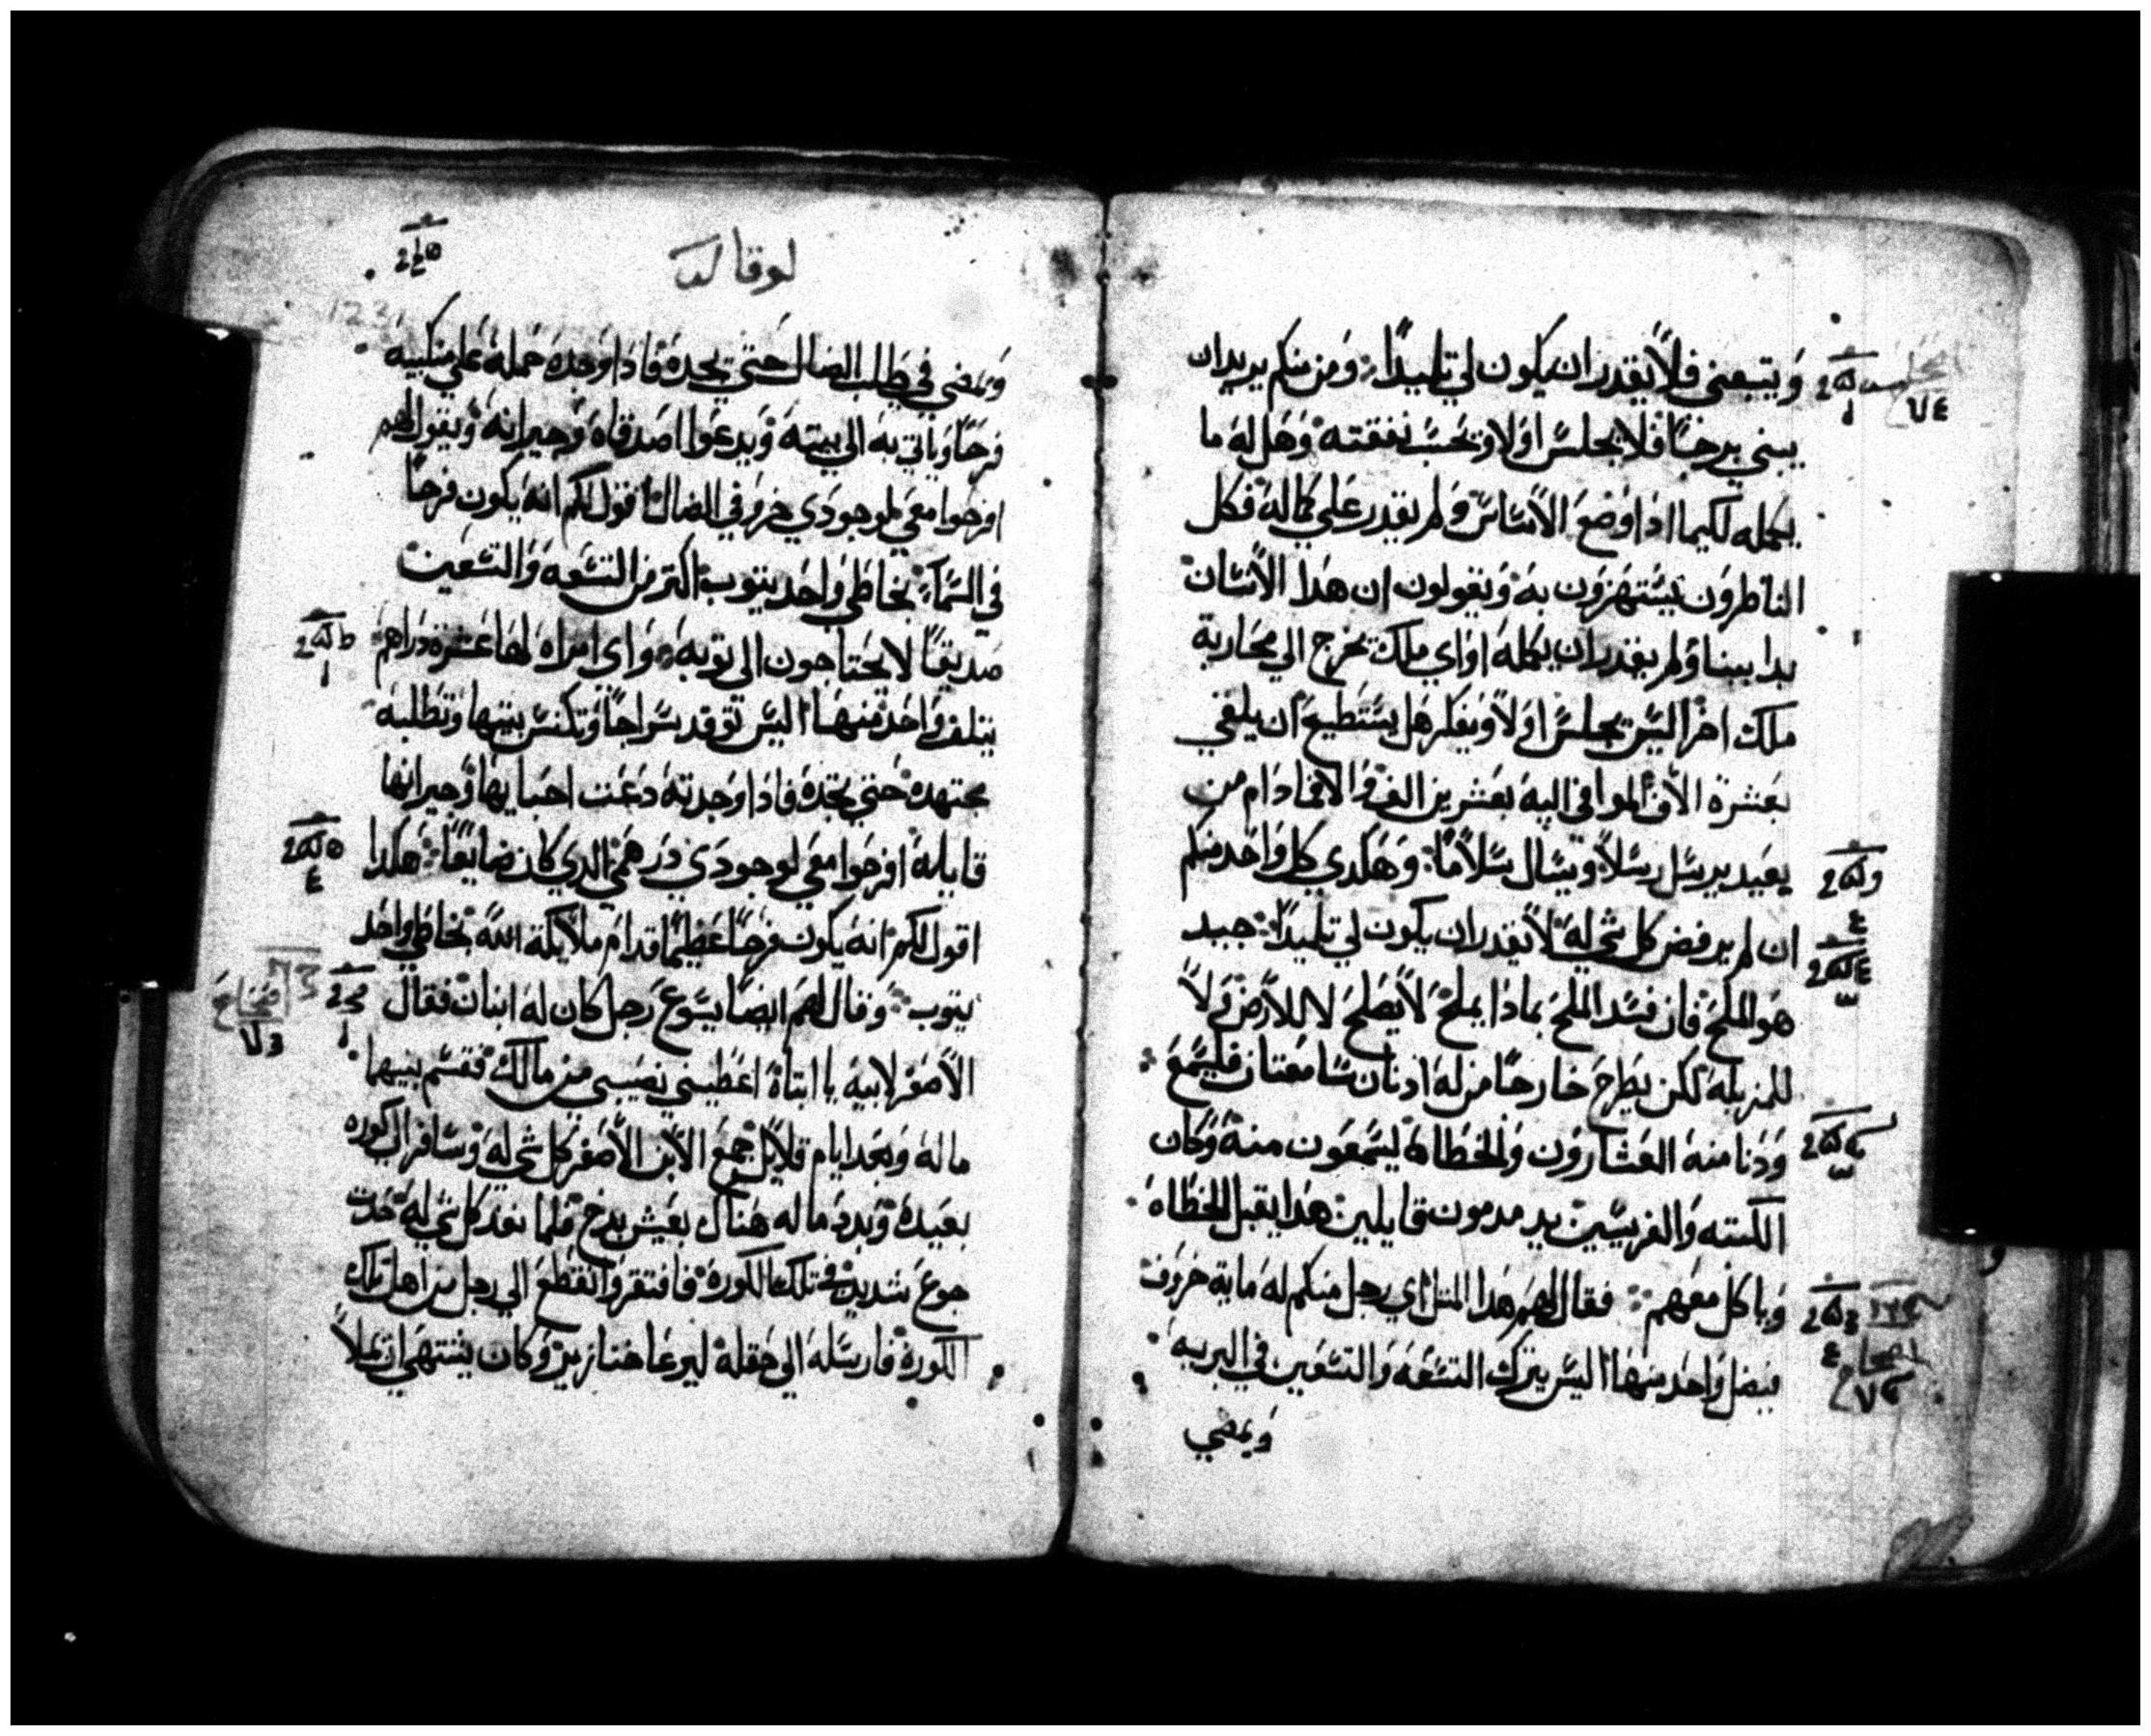 ويتبعني فلا يقدر ان يكون لي تلميدًا ومن منكم يريد ان
يبني برجًا فلا يجلس اولا ويحسب نفقته وهل له ما
يكمله لكيما ادا وضع الاساس ولم يقدر علي كماله فكل
الناظرون يستهزون به ويقولون ان هدا الانسان
بدا ببنا ولم يقدر ان يكمله او اي ملك يخرج الي محاربة
ملك اخر اليس يجلس اولا ويفكر هل يستطيع ان يلقي
بعشرة الاف الموافي اليه بعشرين الف والا فمادام من
بعيد يرسل رسلا ويسال سلامًا وهكدي كل واحد منكم
ان لم يرفض كل شي له لا يقدر ان يكون لي تلميدًا جيد
هو الملح فان فسد الملح بمادا يملح لا يصلح لا للارض ولا
للمزبله لكن يطرح خارجًا من له ادنان سامعتان فليسمع
ودنا منه العشارون والخطاه ليسمعون منه وكان
الكتبه والفريسيين يدمدمون قايلين هدا يقبل الخطاه
وياكل معهم فقال لهم هدا المثل اي رجل منكم له ماية خروف
فيضل واحد منها اليس يترك التسعه والتسعين في البريه
ويمضي
لوقا
ويمضي في طلب الضال حتي يجده فادا وجده حمله علي منكبيه
فرحًا وياتي به الي بيته ويدعوا اصدقاه وجيرانه ويقول لهم
افرحوا معي لوجودي خروفي الضال اقول لكم انه يكون فرحًا
في السماء بخاطي واحد يتوب اكتر من التسعه والتسعين
صديقًا لا يحتاجون الي توبه واي امراه لها عشرة دراهم
يتلف واحد منها اليس توقد سراجًا وتكنس بيتها وتطلبه
مجتهده حتي تجده فادا وجدته دعت احبايها وجيرانها
قايلة افرحوا معي لوجودي درهمي الدي كان ضايعًا هكدا
اقول لكم انه يكون فرحًا عظيمًا قدام ملايكة الله بخاطي واحد
يتوب وقال لهم ايضا يسوع رجل كان له ابنان فقال
الاصغر لابيه يا ابتاه اعطيني نصيبي من مالك فقسم بينهما
ماله وبعد ايام قلايل جمع الابن الاصغر كل شي له وسافر الي كوره
بعيده وبدد ماله هناك بعيش بدخ فلما نفد كل شي له حدت
جوع شديد في تلك الكورة فافتقر وانقطع الي رجل من اهل تلك
الكورة فارسله الي حقله ليرعا خنازير وكان يشتهي ان يملا